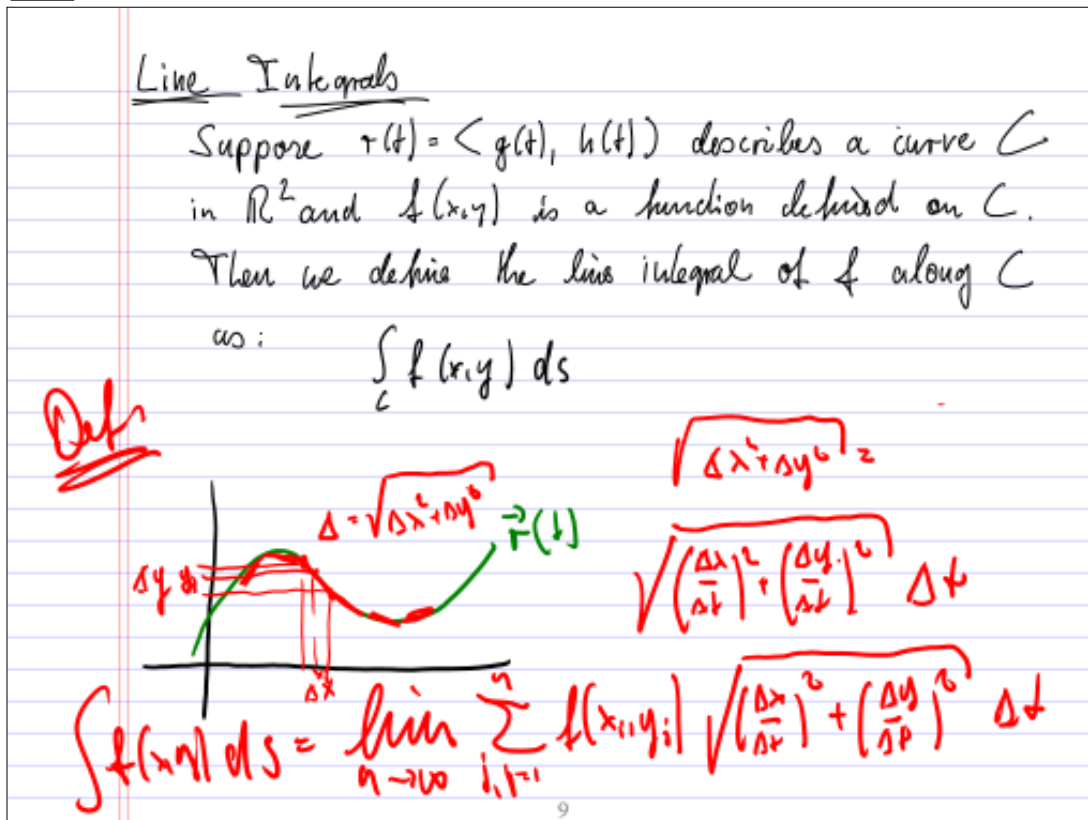 Line Integrals
Suppose r(t) = < g(t), h(t) > describes a curve C
in ℝ² and f(x,y) is a function defined on C.
Then we define the line integral of f along C
as:
∫_C f(x,y) ds
Def
√(Δx²+Δy²) =
Δ = √(Δx²+Δy²)
r⃗(t)
√((Δx/Δt)² + (Δy/Δt)²) Δt
Δy
Δx
∫ f(x,y) ds = lim_{n→∞} Σ_{i,j=1}^{n} f(x_i, y_j) √((Δx/Δt)² + (Δy/Δt)²) Δt
9